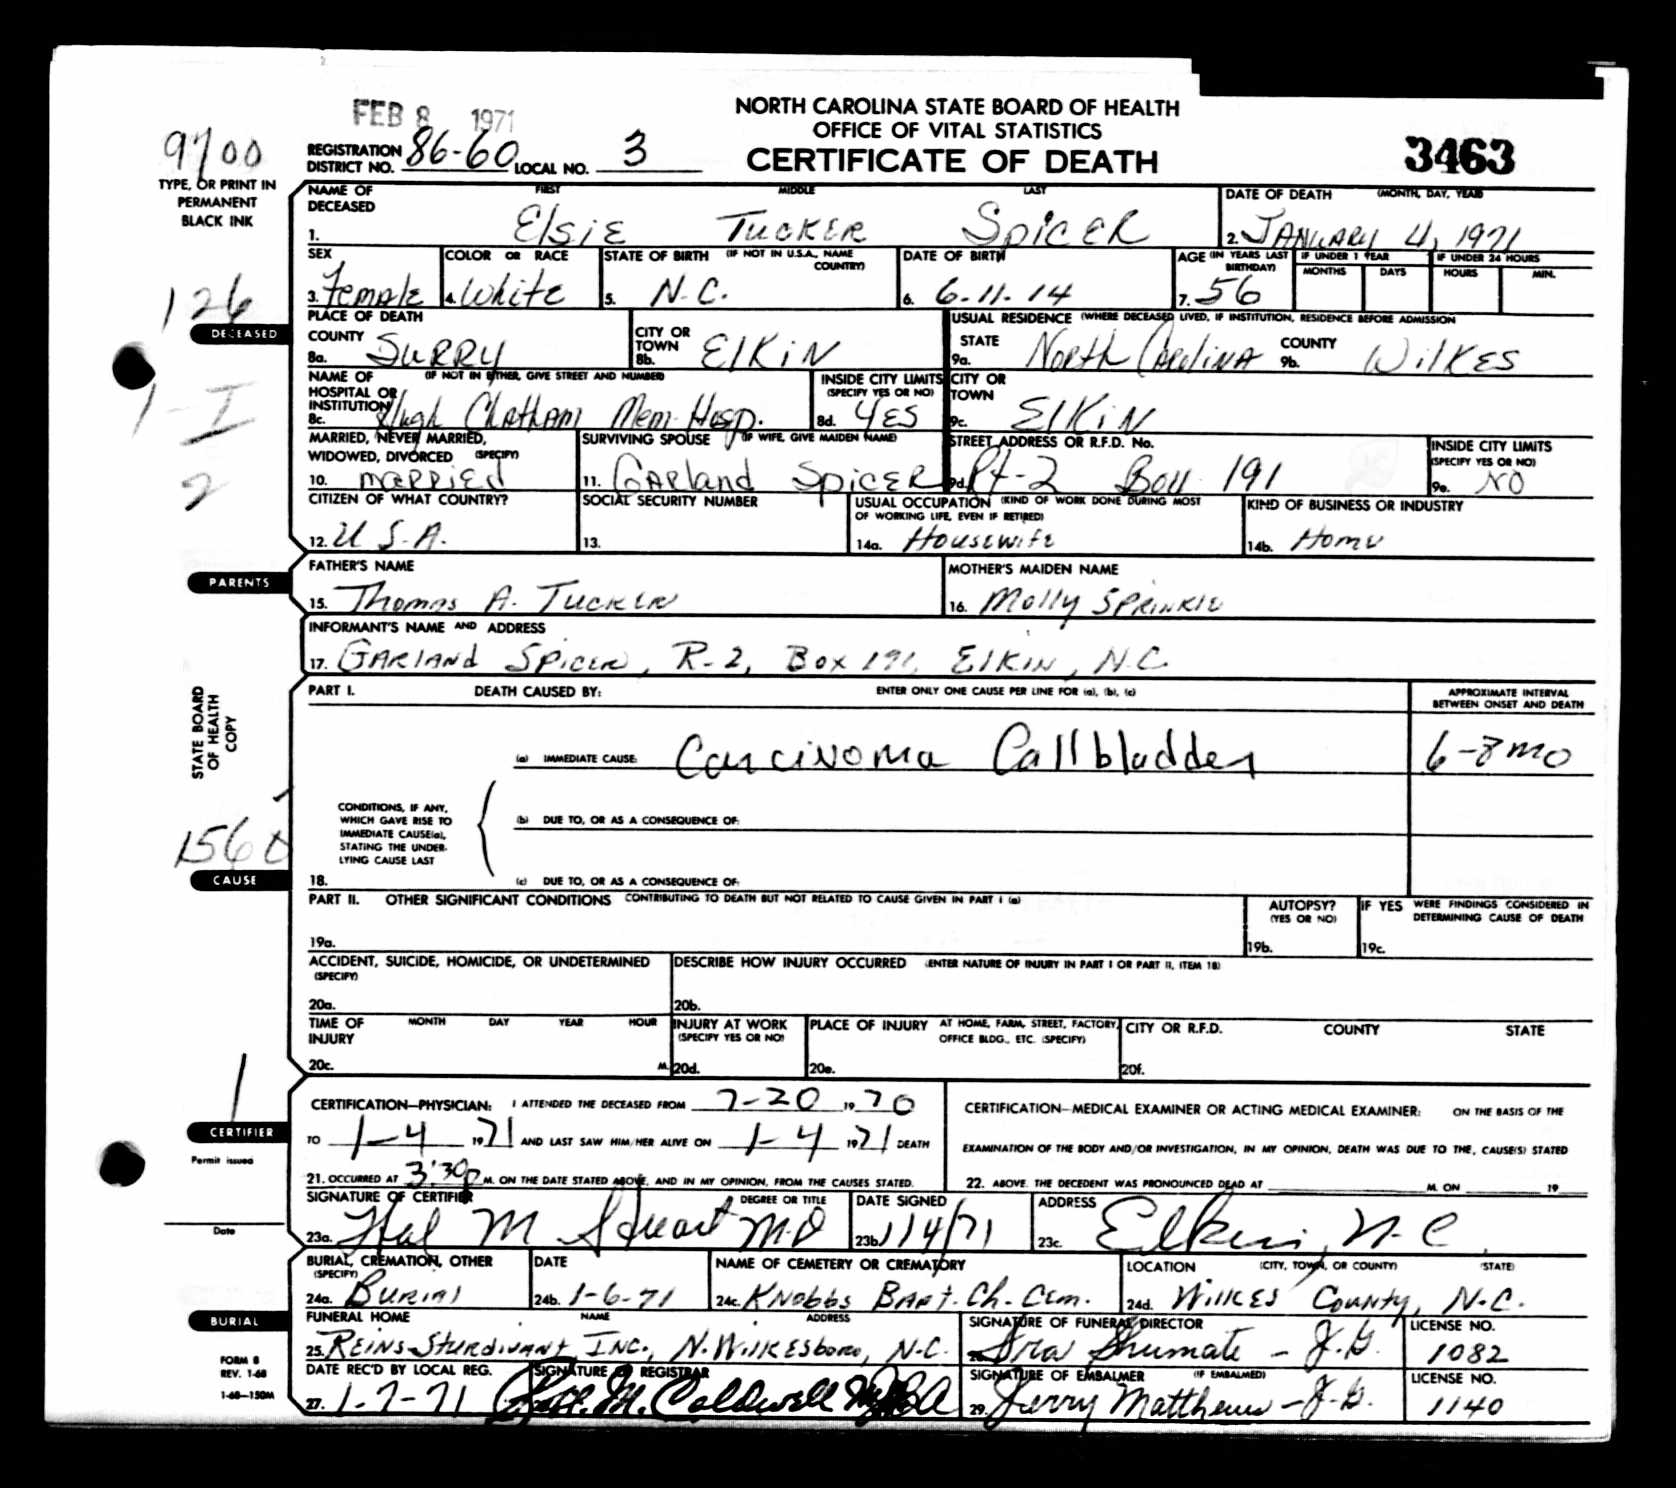 FEB 8 1971
NORTH CAROLINA STATE BOARD OF HEALTH
OFFICE OF VITAL STATISTICS
CERTIFICATE OF DEATH
3463
9700
REGISTRATION DISTRICT NO. 86-60 LOCAL NO. 3
TYPE, OR PRINT IN
PERMANENT
BLACK INK
NAME OF DECEASED FIRST MIDDLE LAST
1. Elsie Tucker Spicer
DATE OF DEATH (MONTH, DAY, YEAR)
2. January 4, 1971
SEX
3. Female
COLOR OR RACE
4. White
STATE OF BIRTH (IF NOT IN U.S.A., NAME COUNTRY)
5. N.C.
DATE OF BIRTH
6. 6-11-14
AGE (IN YEARS LAST BIRTHDAY)
7. 56
IF UNDER 1 YEAR
MONTHS DAYS
IF UNDER 24 HOURS
HOURS MIN.
126
DECEASED
PLACE OF DEATH
COUNTY
8a. Surry
CITY OR TOWN
8b. Elkin
USUAL RESIDENCE (WHERE DECEASED LIVED, IF INSTITUTION, RESIDENCE BEFORE ADMISSION
STATE
9a. North Carolina
COUNTY
9b. Wilkes
1-I
2
NAME OF HOSPITAL OR INSTITUTION (IF NOT IN EITHER, GIVE STREET AND NUMBER)
8c. Hugh Chatham Mem. Hosp.
INSIDE CITY LIMITS (SPECIFY YES OR NO)
8d. Yes
CITY OR TOWN
9c. Elkin
MARRIED, NEVER MARRIED, WIDOWED, DIVORCED (SPECIFY)
10. Married
SURVIVING SPOUSE (IF WIFE, GIVE MAIDEN NAME)
11. Garland Spicer
STREET ADDRESS OR R.F.D. No.
9d. Rt-2 Box 191
INSIDE CITY LIMITS (SPECIFY YES OR NO)
9e. No
CITIZEN OF WHAT COUNTRY?
12. U.S.A.
SOCIAL SECURITY NUMBER
13.
USUAL OCCUPATION (KIND OF WORK DONE DURING MOST OF WORKING LIFE, EVEN IF RETIRED)
14a. Housewife
KIND OF BUSINESS OR INDUSTRY
14b. Home
PARENTS
FATHER'S NAME
15. Thomas A. Tucker
MOTHER'S MAIDEN NAME
16. Molly Sprinkle
INFORMANT'S NAME AND ADDRESS
17. Garland Spicer, R-2, Box 191, Elkin, N.C.
STATE BOARD
OF HEALTH
COPY
PART I. DEATH CAUSED BY: ENTER ONLY ONE CAUSE PER LINE FOR (a), (b), (c)
APPROXIMATE INTERVAL BETWEEN ONSET AND DEATH
(a) IMMEDIATE CAUSE: Carcinoma Gallbladder 6-8 mo
CONDITIONS, IF ANY,
WHICH GAVE RISE TO
IMMEDIATE CAUSE(a),
STATING THE UNDER-
LYING CAUSE LAST
(b) DUE TO, OR AS A CONSEQUENCE OF:
1560
CAUSE
18. (c) DUE TO, OR AS A CONSEQUENCE OF:
PART II. OTHER SIGNIFICANT CONDITIONS CONTRIBUTING TO DEATH BUT NOT RELATED TO CAUSE GIVEN IN PART I (a)
19a.
AUTOPSY? (YES OR NO)
19b.
IF YES WERE FINDINGS CONSIDERED IN DETERMINING CAUSE OF DEATH
19c.
ACCIDENT, SUICIDE, HOMICIDE, OR UNDETERMINED (SPECIFY)
20a.
DESCRIBE HOW INJURY OCCURRED (ENTER NATURE OF INJURY IN PART I OR PART II, ITEM 18)
20b.
TIME OF INJURY MONTH DAY YEAR HOUR
20c. M.
INJURY AT WORK (SPECIFY YES OR NO)
20d.
PLACE OF INJURY AT HOME, FARM, STREET, FACTORY, OFFICE BLDG., ETC. (SPECIFY)
20e.
CITY OR R.F.D. COUNTY STATE
20f.
1
CERTIFIER
Permit issued
Date
CERTIFICATION—PHYSICIAN: I ATTENDED THE DECEASED FROM 7-20 1970
TO 1-4 1971 AND LAST SAW HIM/HER ALIVE ON 1-4 1971 DEATH
21. OCCURRED AT 3:30 P M. ON THE DATE STATED ABOVE, AND IN MY OPINION, FROM THE CAUSES STATED.
CERTIFICATION—MEDICAL EXAMINER OR ACTING MEDICAL EXAMINER: ON THE BASIS OF THE
EXAMINATION OF THE BODY AND/OR INVESTIGATION, IN MY OPINION, DEATH WAS DUE TO THE, CAUSE(S) STATED
22. ABOVE. THE DECEDENT WAS PRONOUNCED DEAD AT M. ON 19
SIGNATURE OF CERTIFIER DEGREE OR TITLE
23a. Hal M Stuart MD
DATE SIGNED
23b. 1/4/71
ADDRESS
23c. Elkin, N.C.
BURIAL, CREMATION, OTHER (SPECIFY)
24a. Burial
DATE
24b. 1-6-71
NAME OF CEMETERY OR CREMATORY
24c. Knobbs Bapt. Ch. Cem.
LOCATION (CITY, TOWN, OR COUNTY) (STATE)
24d. Wilkes County, N.C.
BURIAL
FUNERAL HOME NAME ADDRESS
25. Reins-Sturdivant, Inc., N. Wilkesboro, N.C.
SIGNATURE OF FUNERAL DIRECTOR
Ira Shumate - J.G.
LICENSE NO.
1082
FORM 8
REV. 1-68
1-68—150M
DATE REC'D BY LOCAL REG.
27. 1-7-71
SIGNATURE OF REGISTRAR
M. Caldwell
SIGNATURE OF EMBALMER (IF EMBALMED)
29. Jerry Matthews - J.G.
LICENSE NO.
1140